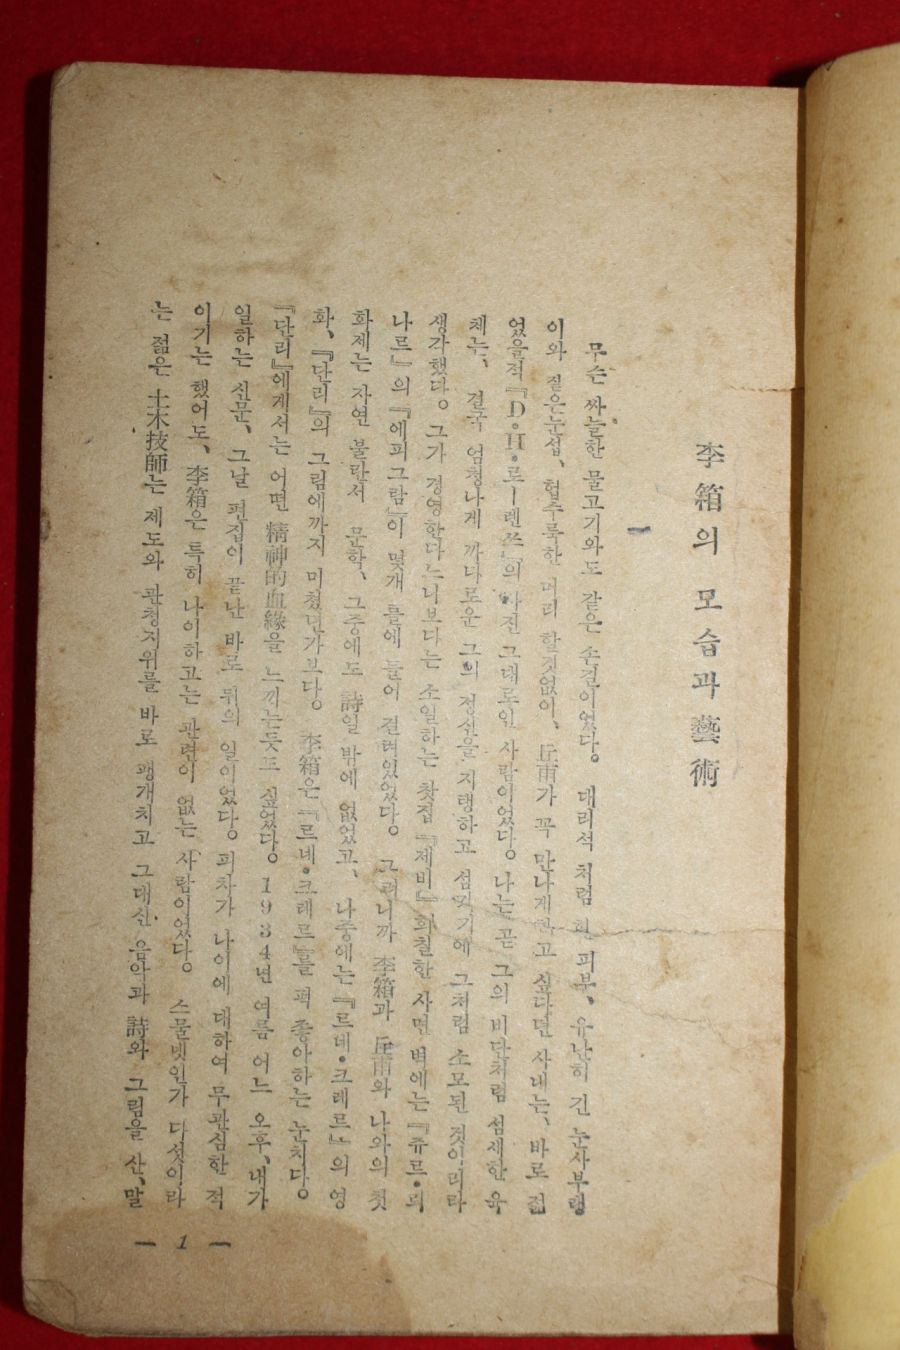 李箱의 모습과 藝術
一
무슨 싸늘한 물고기와도 같은 손결이었다。 대리석 처럼 흰 피부、 유난히 긴 눈사부랭
이와 짙은눈섭、 헙수룩한 머리 할것없이、 丘甫가 꼭 만나게하고 싶다던 사내는、 바로 젊
었을적『D·H·로—렌쓰』의 사진 그대로인 사람이었다。 나는 곧 그의 비단처럼 섬세한 육
체는、 결국 엄청나게 까다로운 그의 정신을 지탱하고 섬기기에 그처럼 소모된 것이리라
생각했다。 그가 경영한다느니보다는 소일하는 찻집『제비』 회칠한 사면 벽에는『쥬르·뢰
나르』의『에피그람』이 몇개 틀에 들어 걸려있었다。 그러니까 李箱과 丘甫와 나와의 첫
화제는 자연 불란서 문학、 그중에도 詩일 밖에 없었고、 나중에는『르네·크레르』의 영
화、『단리』의 그림에까지 미쳤던가보다。 李箱은『르네·크레르』를 퍽 좋아하는 눈치다。
『단리』에게서는 어떤 精神的血緣을 느끼는듯도 싶었다。 1934년 여름 어느 오후、내가
일하는 신문、그날 편집이 끝난 바로 뒤의 일이었다。 피차가 나이에 대하여 무관심한 적
이기는 했어도、 李箱은 특히 나이하고는 관련이 없는 사람이었다。 스물넷인가 다섯이라
는 젊은 土木技師는 제도와 관청지위를 바로 팽개치고 그대신 음악과 詩와 그림을 산、말
— 1 —